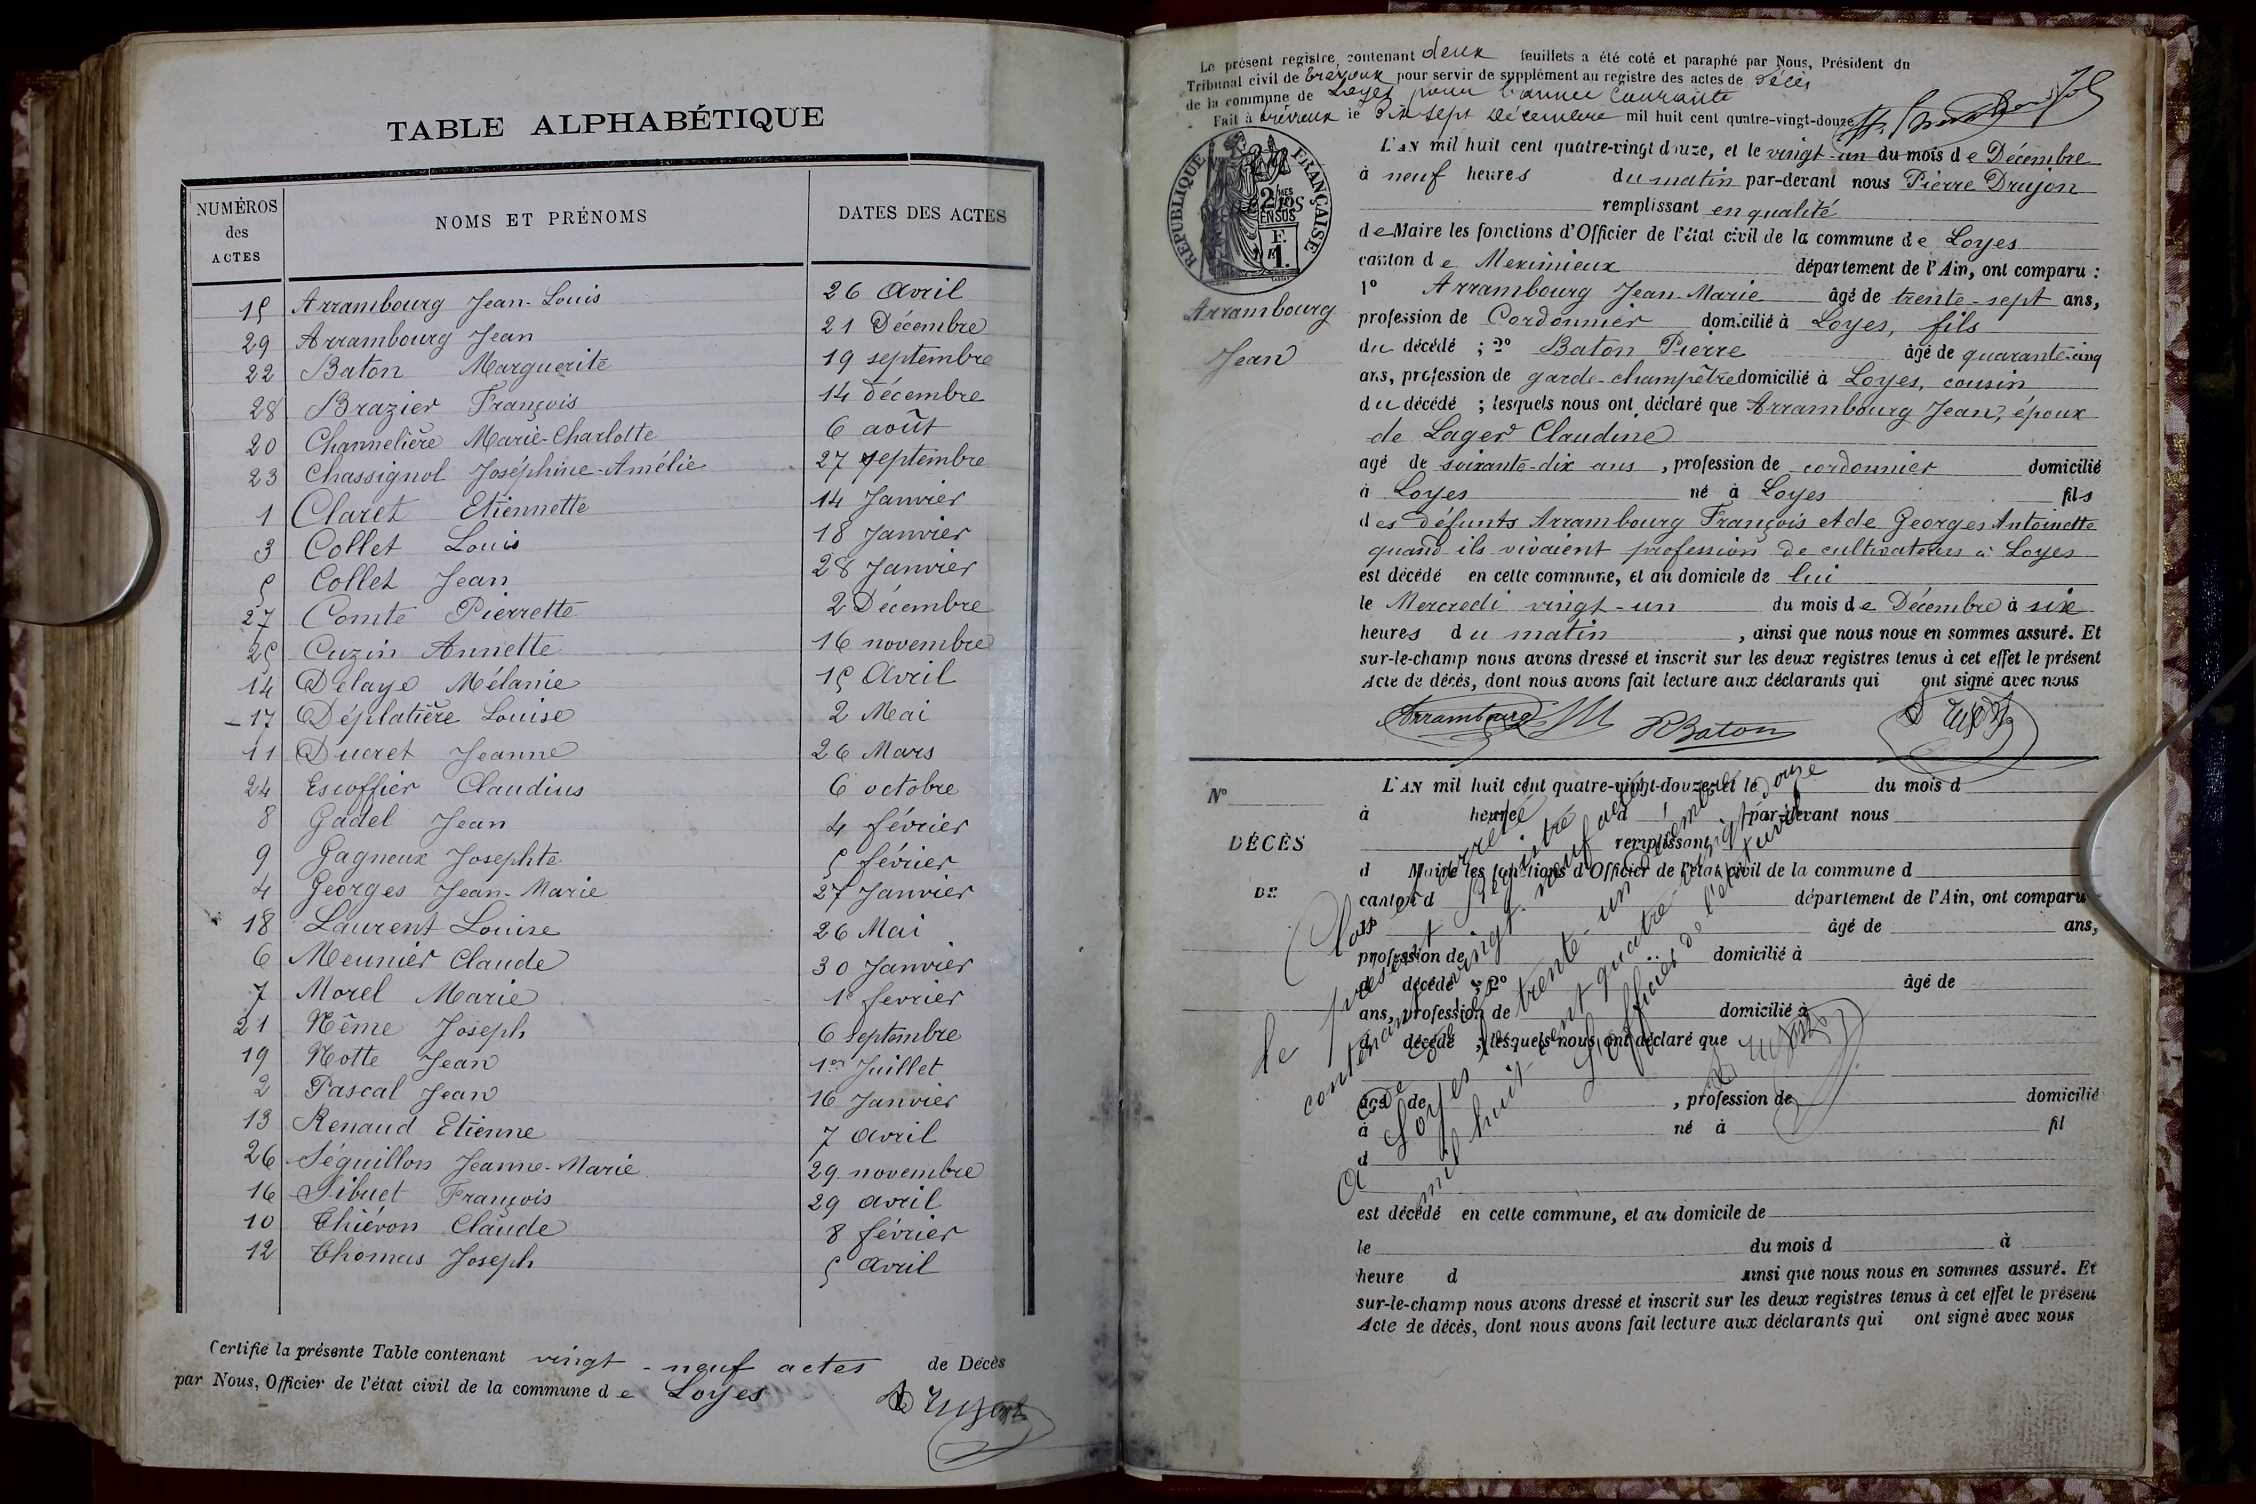 TABLE ALPHABÉTIQUE
NUMÉROS des ACTES NOMS ET PRÉNOMS DATES DES ACTES
15 Arrambourg Jean-Louis 26 Avril
29 Arrambourg Jean 21 Décembre
22 Baton Marguerite 19 septembre
28 Brazier François 14 décembre
20 Channelière Marie-Charlotte 6 août
23 Chassignol Joséphine-Amélie 27 septembre
1 Claret Etiennette 14 Janvier
3 Collet Louis 18 Janvier
5 Collet Jean 28 Janvier
27 Comte Pierrette 2 Décembre
25 Cuzin Annette 16 novembre
14 Delaye Mélanie 15 Avril
17 Déplatière Louise 2 Mai
11 Ducret Jeanne 26 Mars
24 Escoffier Claudius 6 octobre
8 Gadel Jean 4 février
9 Gagneux Josephte 5 février
4 Georges Jean-Marie 27 Janvier
18 Laurent Louise 26 Mai
6 Meunier Claude 30 Janvier
7 Morel Marie 1er fevrier
21 Nême Joseph 6 septembre
19 Notte Jean 1er Juillet
2 Pascal Jean 16 Janvier
13 Renaud Etienne 7 avril
26 Séguillon Jeanne-Marie 29 novembre
16 Sibuet François 29 avril
10 Thiévon Claude 8 février
12 Thomas Joseph 5 avril
Certifié la présente Table contenant vingt-neuf actes de Décès
par Nous, Officier de l'état civil de la commune de Loyes
Drujon
Le présent registre, contenant deux feuillets a été coté et paraphé par Nous, Président du
Tribunal civil de Trévoux pour servir de supplément au registre des actes de décès
de la commune de Loyes pour l'année courante
Fait à Trévoux le dix sept décembre mil huit cent quatre-vingt-douze
RÉPUBLIQUE FRANÇAISE
2/10MES EN SUS
F. 1.
Arrambourg
Jean
L'AN mil huit cent quatre-vingt douze, et le vingt-un du mois de Décembre
à neuf heures du matin par-devant nous Pierre Drujon
remplissant en qualité
de Maire les fonctions d'Officier de l'état civil de la commune de Loyes
canton de Meximieux département de l'Ain, ont comparu :
1º Arrambourg Jean-Marie âgé de trente-sept ans,
profession de Cordonnier domicilié à Loyes, fils
du décédé ; 2º Baton Pierre âgé de quarante-cinq
ans, profession de garde-champêtre domicilié à Loyes, cousin
du décédé ; lesquels nous ont déclaré que Arrambourg Jean, époux
de Lager Claudine
agé de soixante-dix ans , profession de cordonnier domicilié
à Loyes né à Loyes fils
des défunts Arrambourg François et de Georges Antoinette
quand ils vivaient profession de cultivateurs à Loyes
est décédé en cette commune, et au domicile de lui
le Mercredi vingt-un du mois de Décembre à six
heures du matin , ainsi que nous nous en sommes assuré. Et
sur-le-champ nous avons dressé et inscrit sur les deux registres tenus à cet effet le présent
Acte de décès, dont nous avons fait lecture aux déclarants qui ont signé avec nous
Arrambourg JM PBaton Drujon
Nº
DÉCÈS
DE
L'AN mil huit cent quatre-vingt-douze, et le du mois d
à heure d par-devant nous
remplissant
d Maire les fonctions d'Officier de l'état civil de la commune d
canton d département de l'Ain, ont comparu
1º âgé de ans,
profession de domicilié à
d décédé ; 2º âgé de
ans, profession de domicilié à
d décédé ; lesquels nous ont déclaré que
âgé de , profession de domicilié
à né à fil
d
est décédé en cette commune, et au domicile de
le du mois d à
heure d ainsi que nous nous en sommes assuré. Et
sur-le-champ nous avons dressé et inscrit sur les deux registres tenus à cet effet le présent
Acte de décès, dont nous avons fait lecture aux déclarants qui ont signé avec nous
Clos et arrêté
le présent Registre
contenant vingt-neuf actes
de décès
A Loyes le trente-un décembre
mil huit cent quatre-vingt-douze
L'officier de l'état civil
Drujon